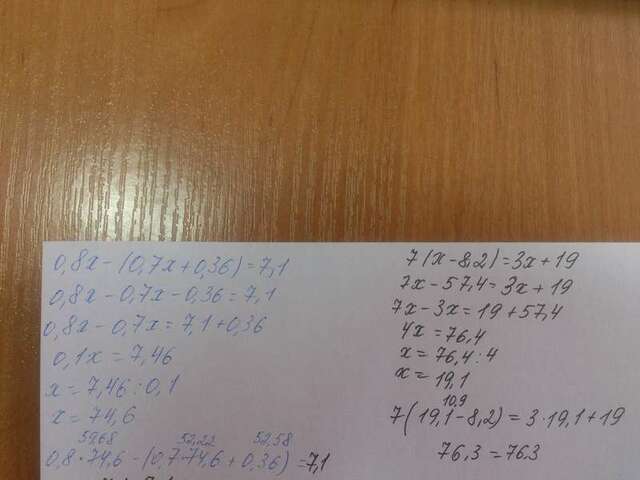 0,8x-(0,7x+0,36)=7,1
0,8x-0,7x-0,36=7,1
0,8x-0,7x=7,1+0,36
0,1x=7,46
x=7,46:0,1
x=74,6
59,68 52,22 52,58
0,8·74,6-(0,7·74,6+0,36)=7,1
7(x-8,2)=3x+19
7x-57,4=3x+19
7x-3x=19+57,4
4x=76,4
x=76,4:4
x=19,1
10,9
7(19,1-8,2)=3·19,1+19
76,3=76,3